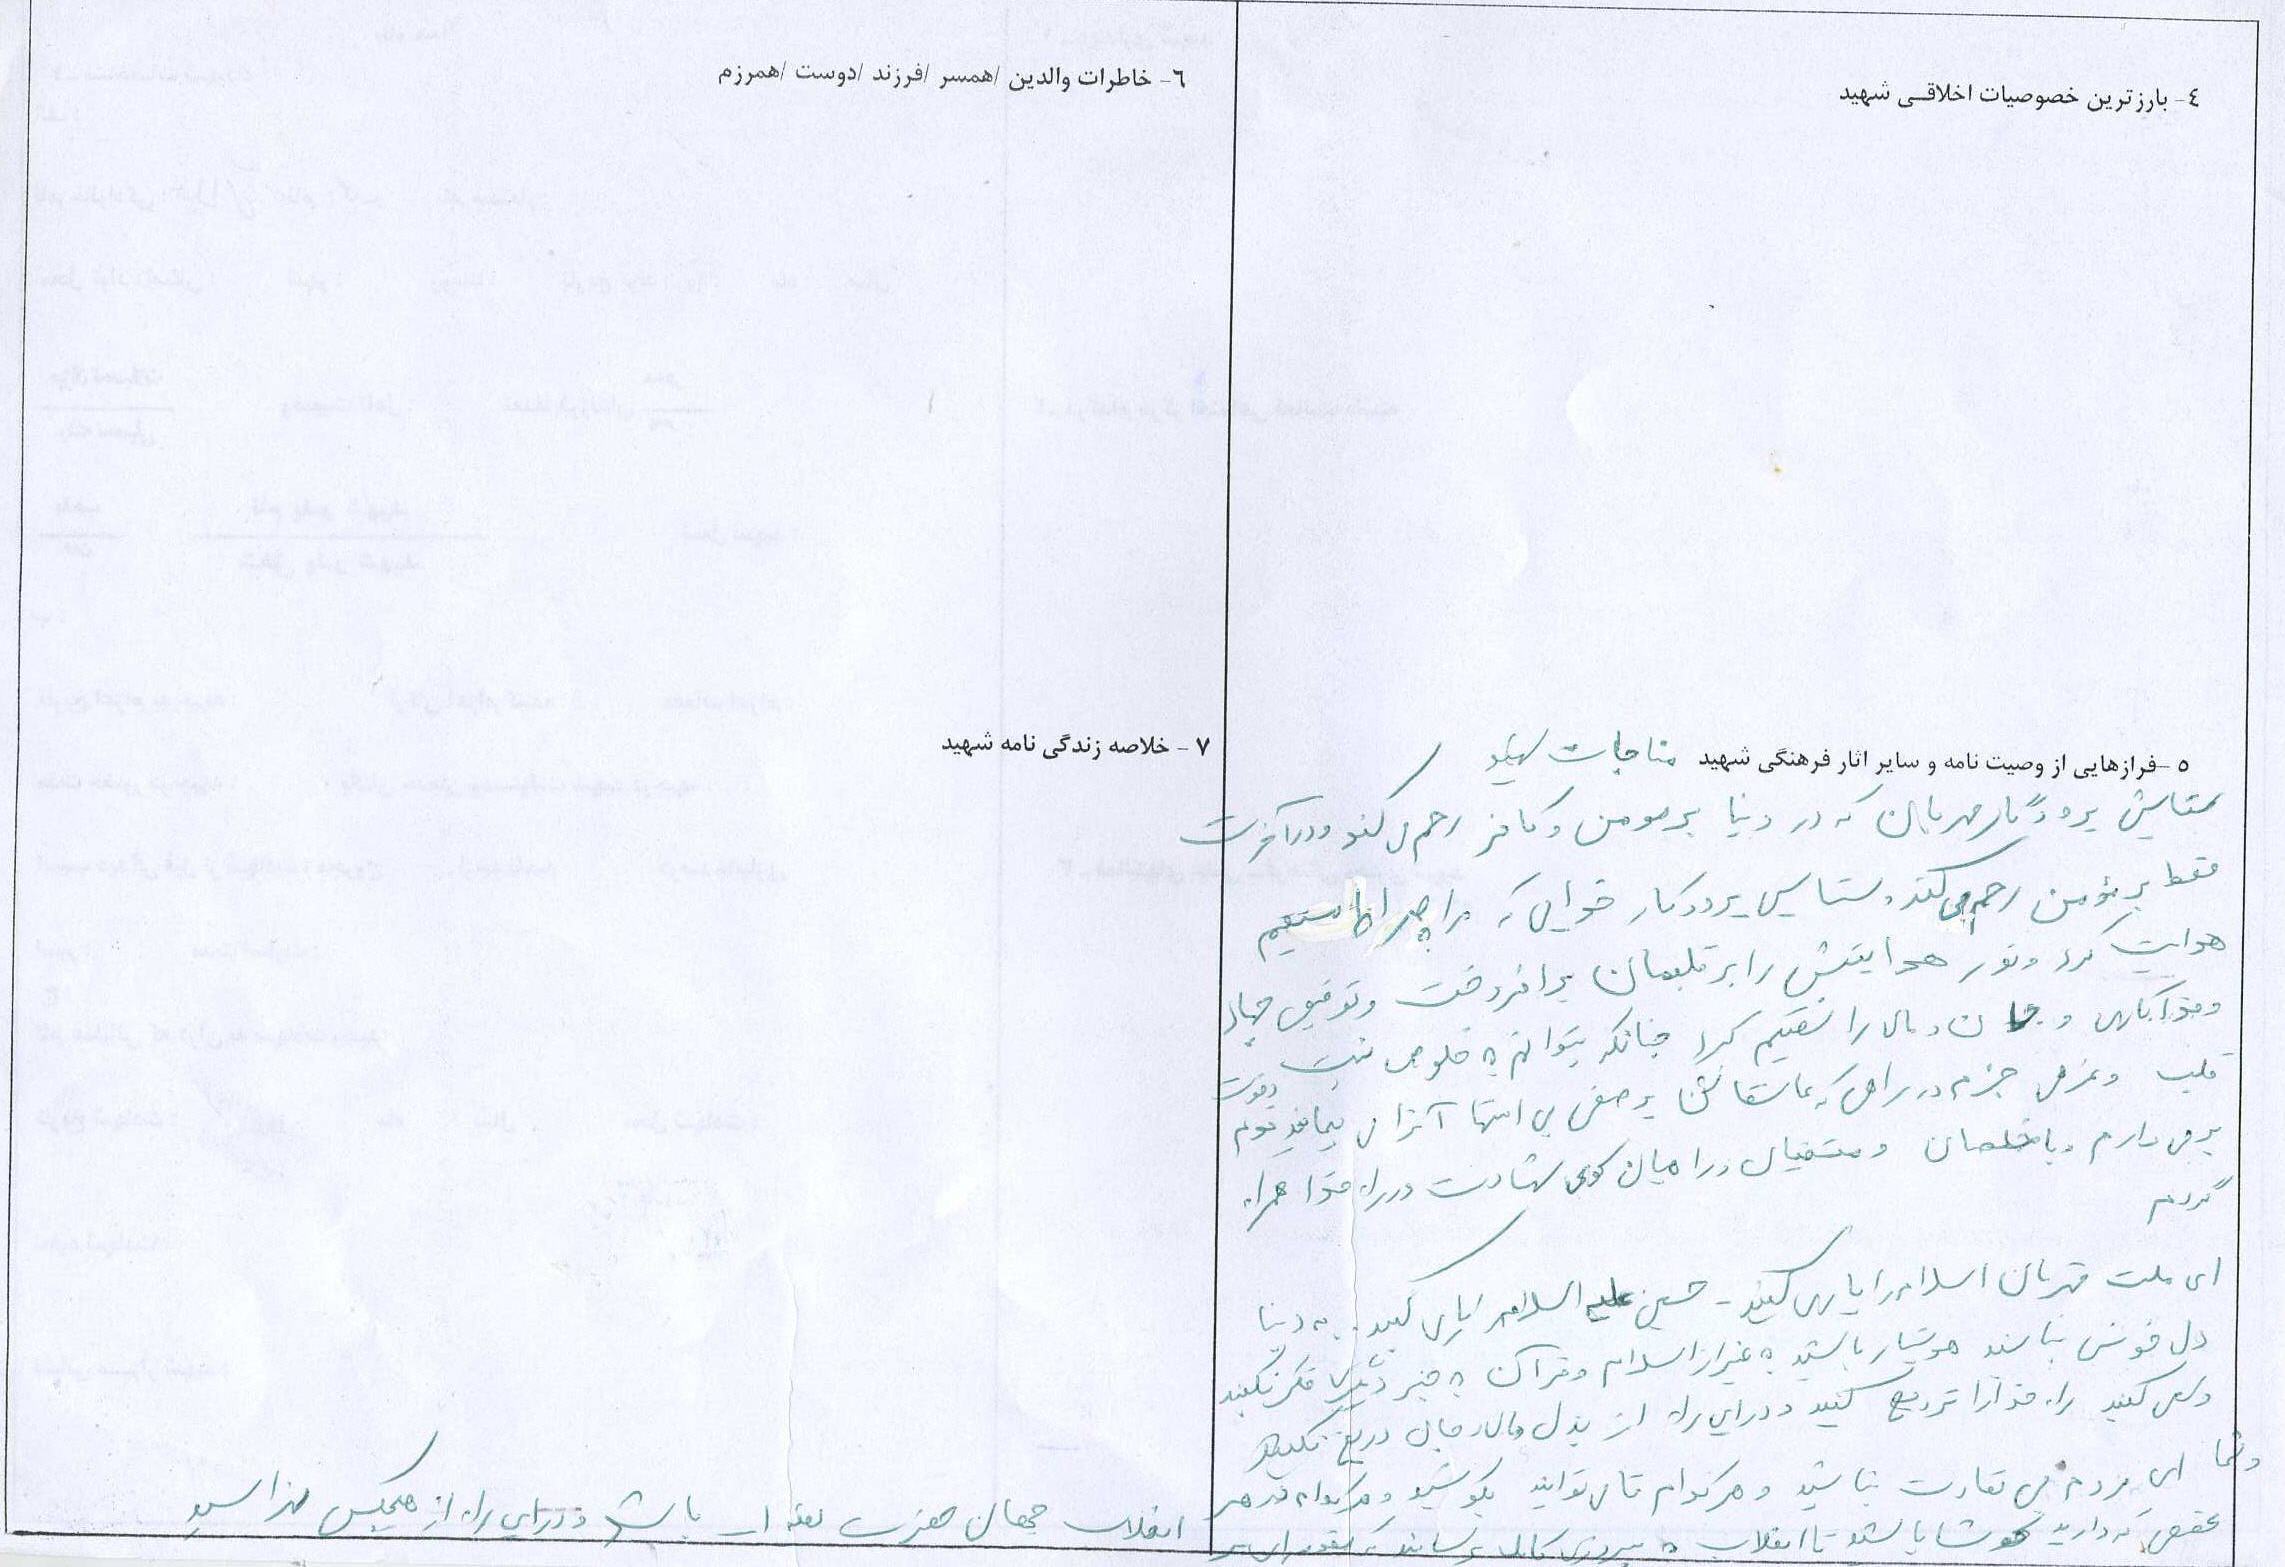 ٤- بارزترین خصوصیات اخلاقی شهید
٥-فرازهایی از وصیت نامه و سایر اثار فرهنگی شهید مناجات شهید
ستایش پرودگار مهربان که در دنیا بر مومن و کافر رحم می کند و در آخرت
فقط بر مؤمن رحم می کند. ستایس پروردگار خدایی که مرا به صراط مستقیم
هدایت کرد و نور هدایتش را بر قلبمان برافروخت و توفیق جهاد
و فداکاری و جان و مال را نصیبم کرد چنانکه بتوانم به خلوص نیت
قلب و عزمی جزم در راهی که عاشقانش بی انتها آنرا می پیمایند قدم
بر می دارم و با مخلصان و متقیان و راهیان کوی شهادت در راه خدا همراه
گردم
ای ملت قهرمان اسلام را یاری کنید - حسین علیه السلام را یاری کنید. به دنیا
دل خوش نباشید هوشیار باشید به غیر از اسلام و قرآن به چیز دیگری فکر نکنید
و سعی کنید راه خدا را ترویج کنید و در این راه از بذل مال و جان دریغ نکنید
و شما ای مردم بی تفاوت نباشید و هر کدام تا می توانید بکوشید و هر کدام در هر
که دارید کوشا باشید تا انقلاب به پیروزی کامل برسانید که
٦- خاطرات والدین /همسر /فرزند /دوست /همرزم
٧- خلاصه زندگی نامه شهید
انقلاب جهان حضرت باشد و در این راه از هیچکس نهراسید